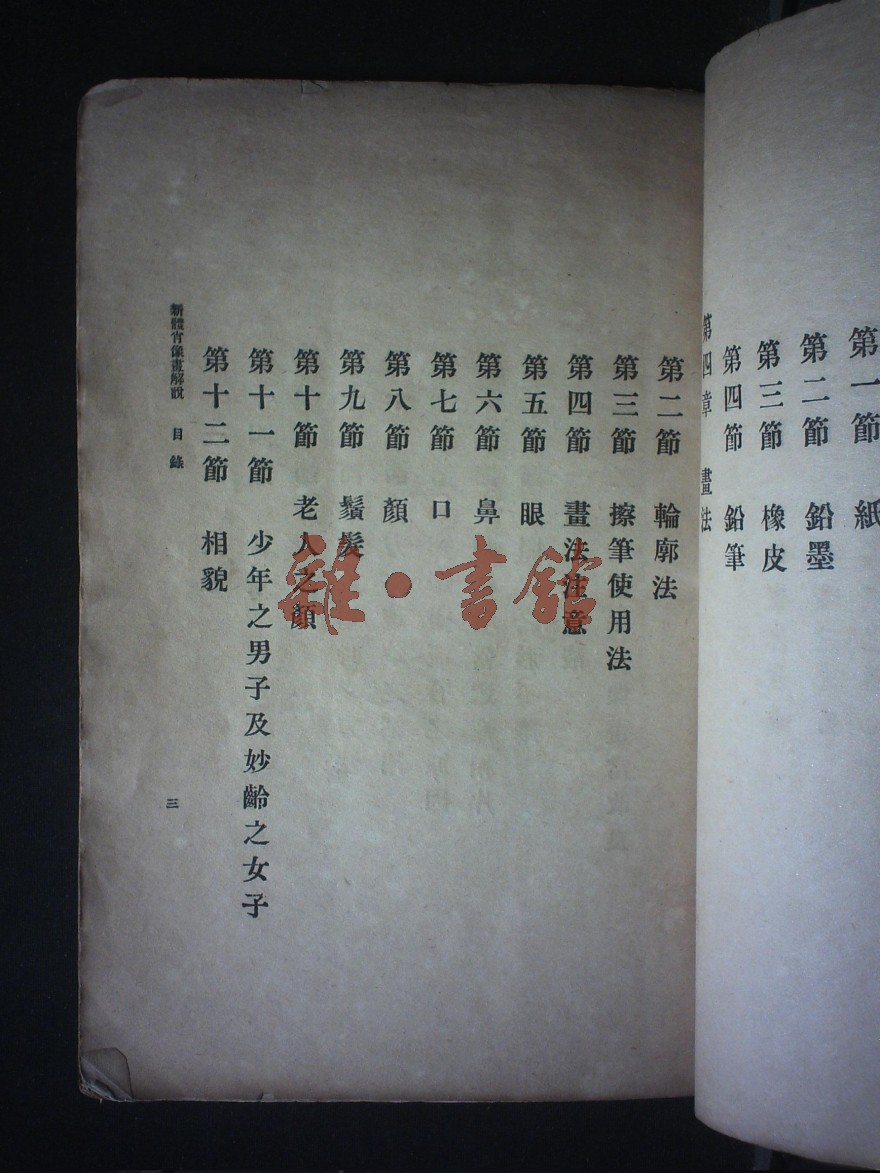 第一節 紙
第二節 鉛墨
第三節 橡皮
第四節 鉛筆
第四章 畫法
第二節 輪廓法
第三節 擦筆使用法
第四節 畫法注意
第五節 眼
第六節 鼻
第七節 口
第八節 顏
第九節 鬚髮
第十節 老人之顏
第十一節 少年之男子及妙齡之女子
第十二節 相貌
新體肖像畫解說 目錄
三
雜·書館